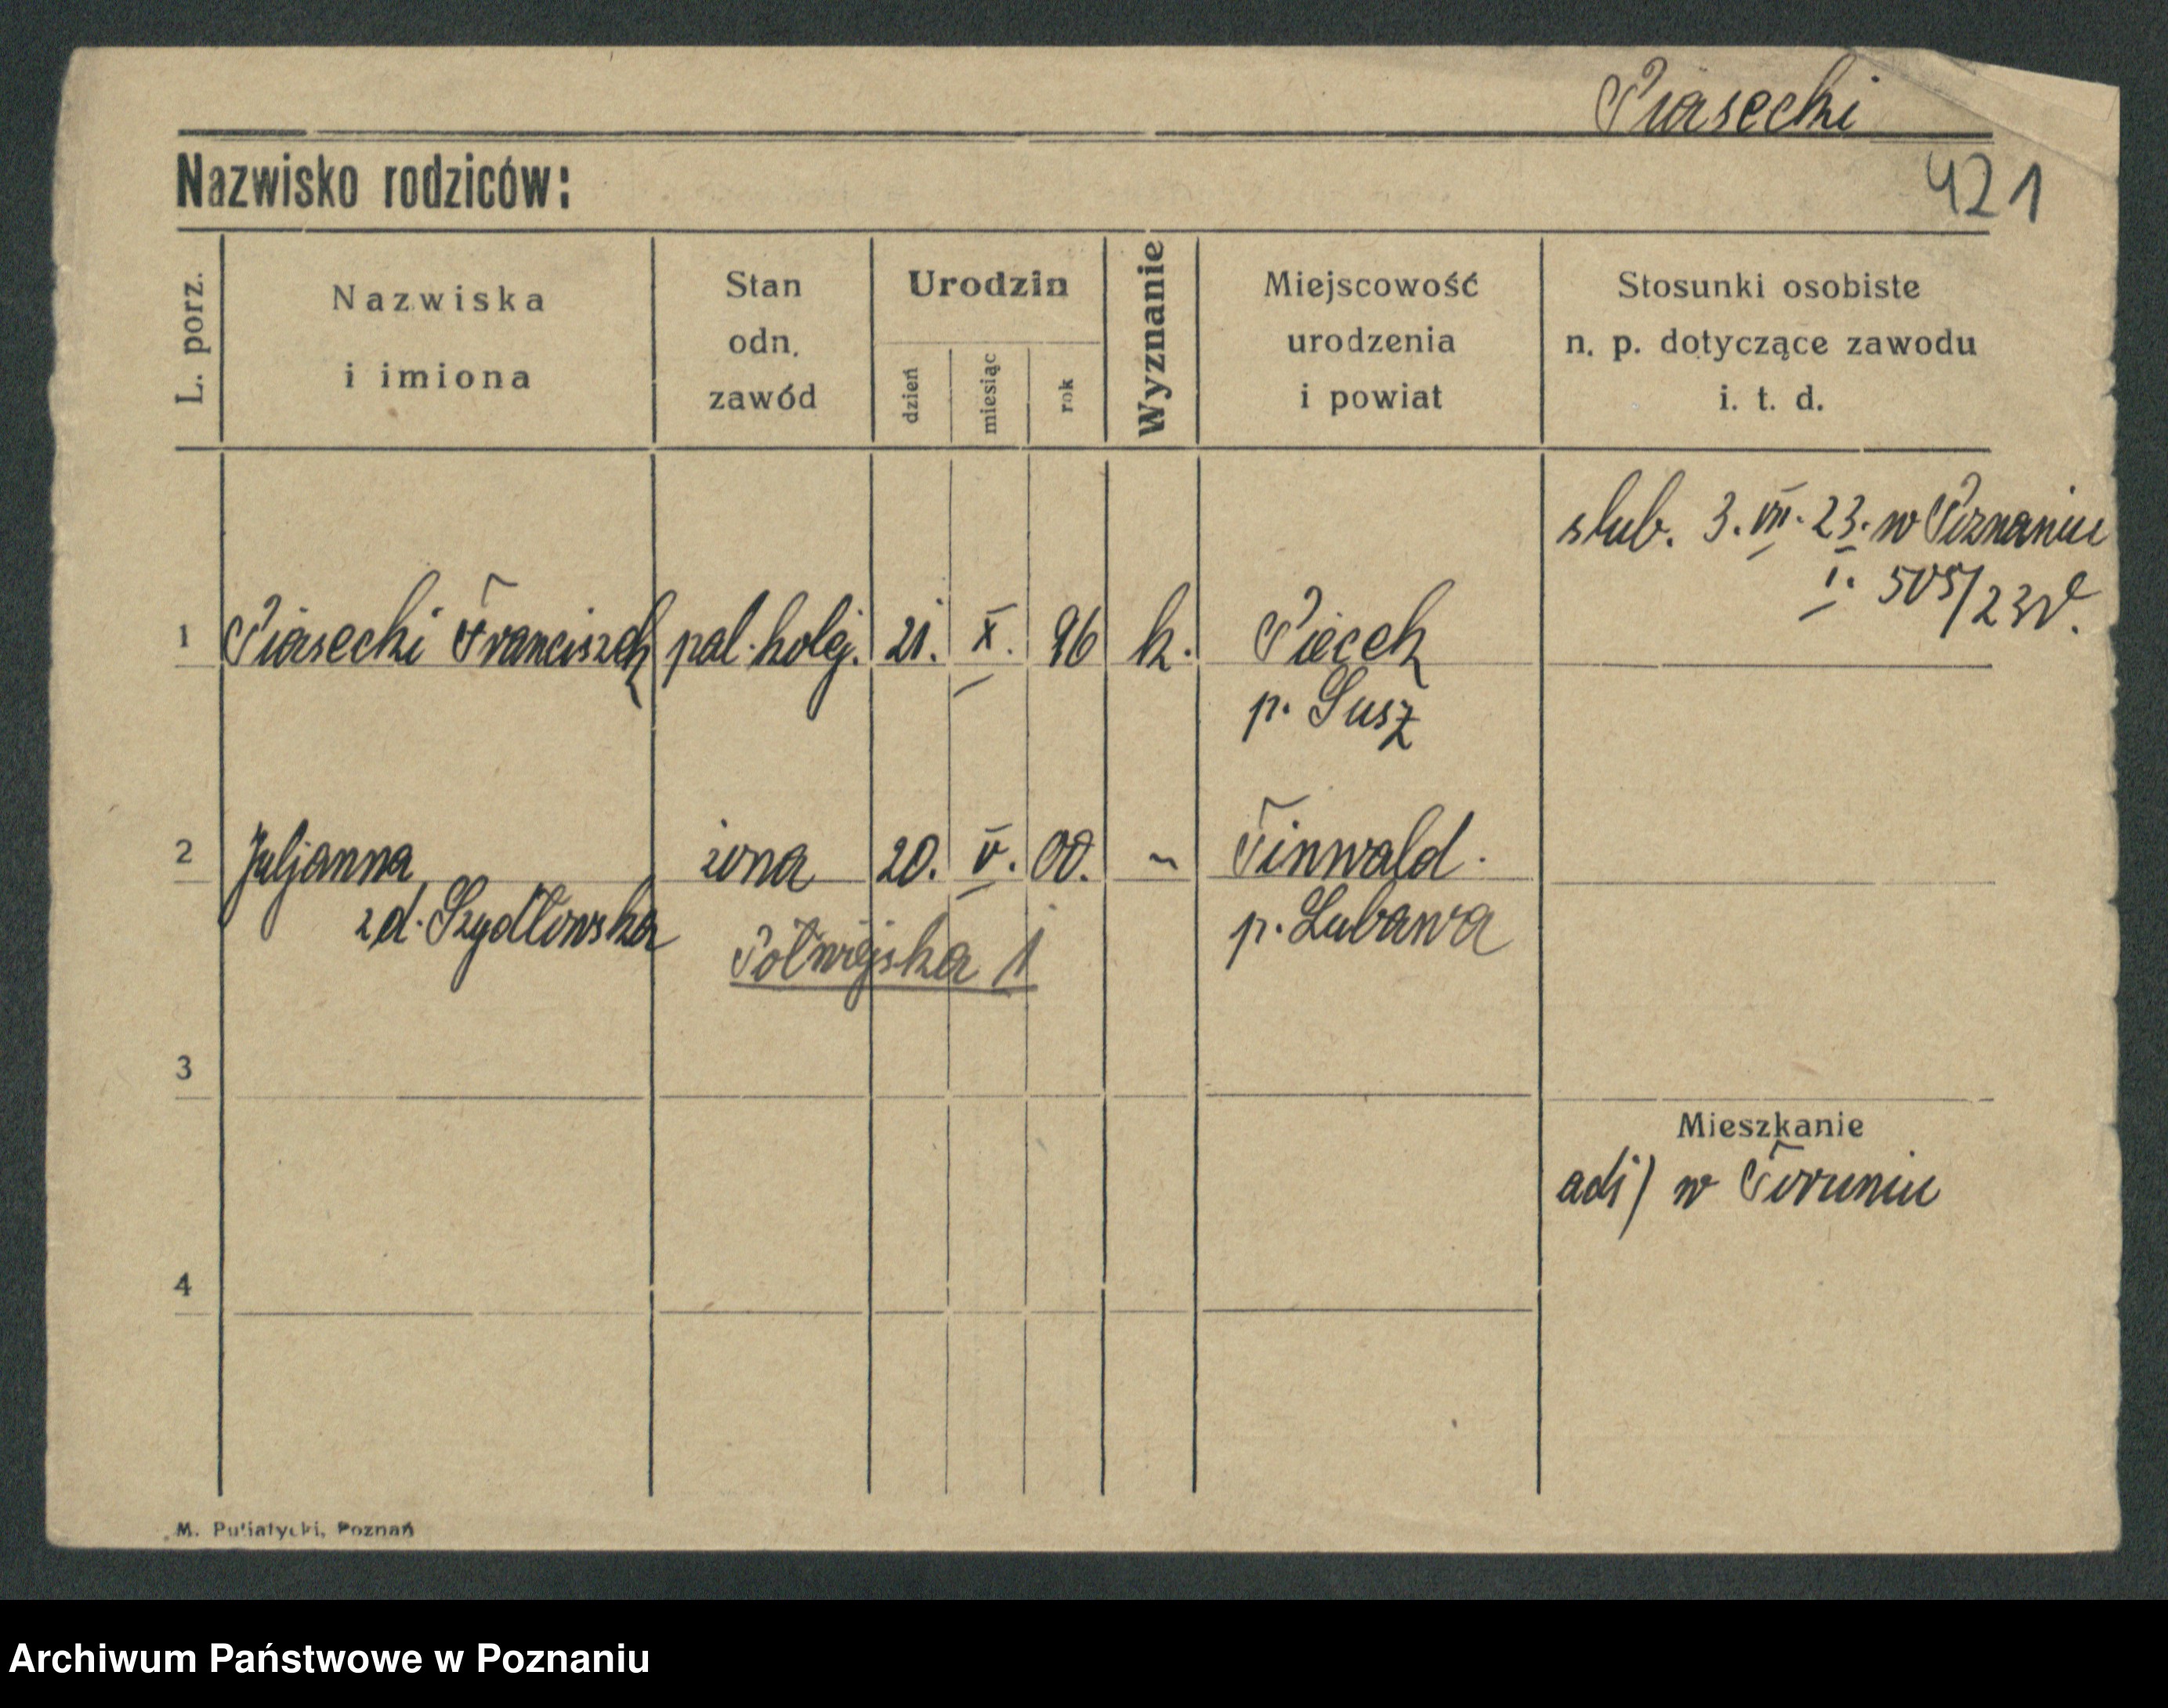 Piasecki
421
Nazwisko rodziców:
L. porz.
Nazwiska
i imiona
Stan
odn.
zawód
Urodzin
dzień
miesiąc
rok
Wyznanie
Miejscowość
urodzenia
i powiat
Stosunki osobiste
n. p. dotyczące zawodu
i. t. d.
slub. 3. VII. 23. w Poznaniu
I. 505/23
1 Piasecki Franciszek pal. kolej. 21. X. 96 k. Piecek
p. Susz
2 Juljanna żona 20. V. 00. ~ Tinwald.
zd. Szydłowska p. Lubawa
Półwiejska 1
3
Mieszkanie
adi) w Toruniu
4
M. Putiatycki, Poznań
Archiwum Państwowe w Poznaniu